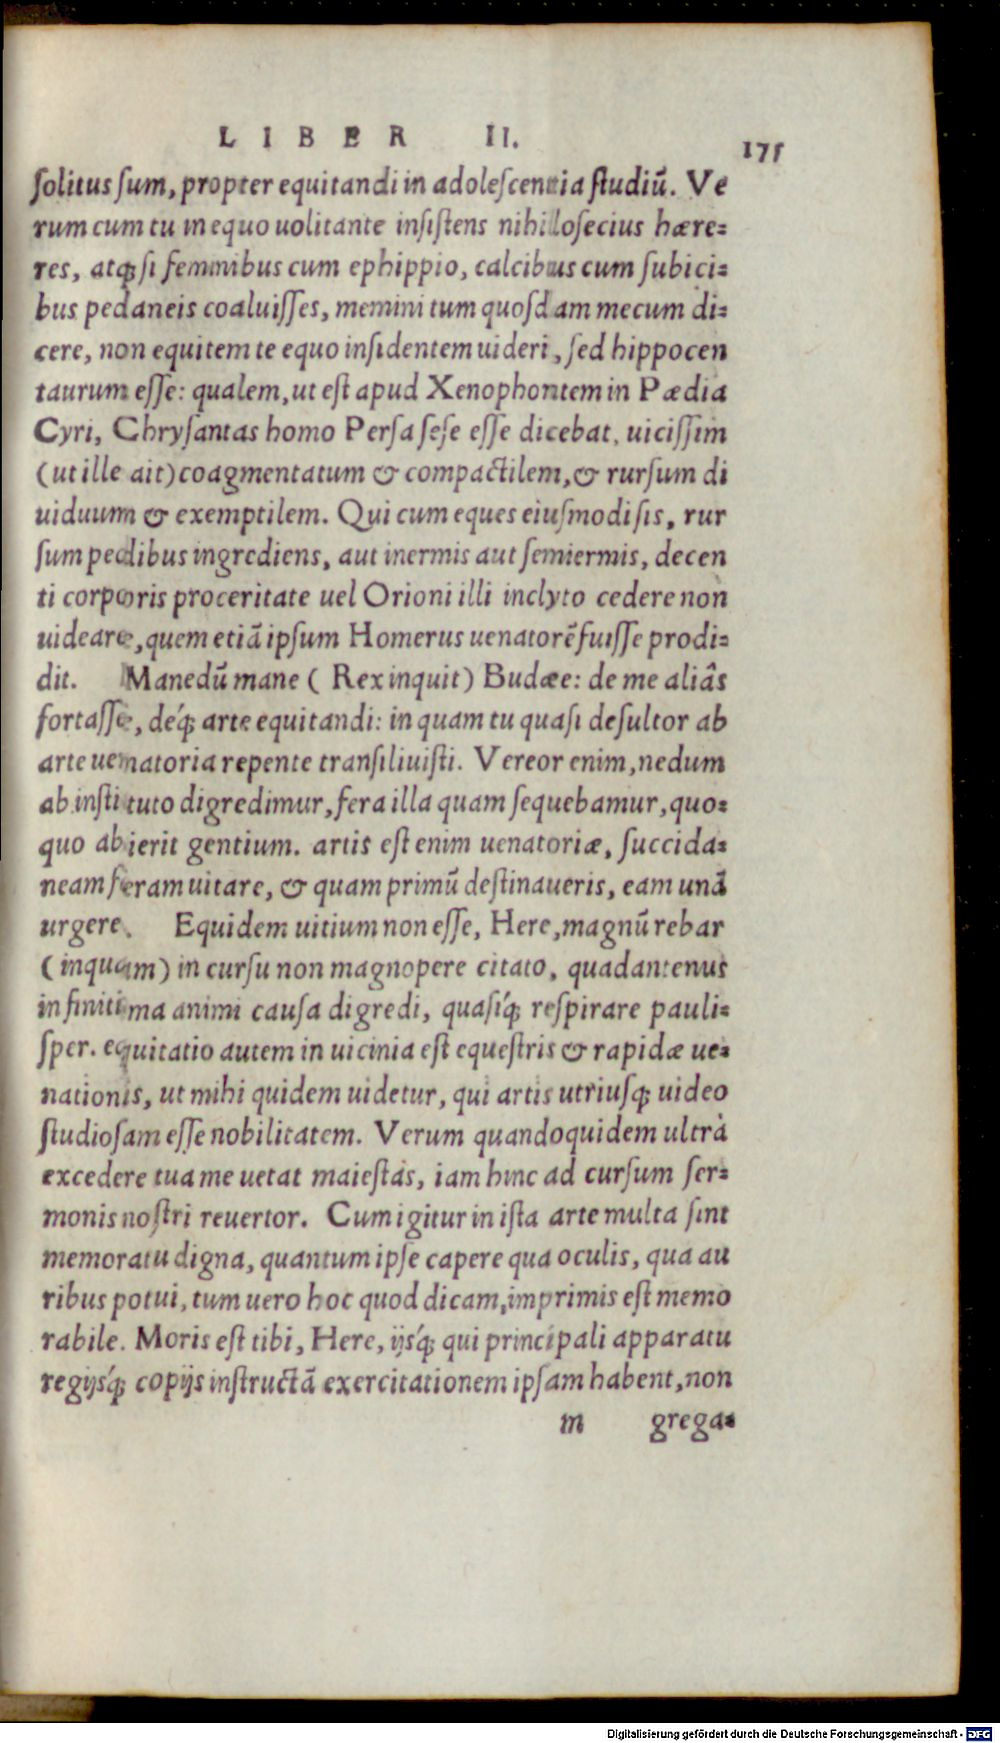 LIBER II. 175
ſolitus ſum, propter equitandi in adoleſcentia ſtudiū. Ve
rum cum tu in equo uolitante inſiſtens nihilloſecius hære=
res, atq́; ſi feminibus cum ephippio, calcibus cum ſubici=
bus pedaneis coaluiſſes, memini tum quoſdam mecum di=
cere, non equitem te equo inſidentem uideri, ſed hippocen
taurum eſſe: qualem, ut eſt apud Xenophontem in Pædia
Cyri, Chryſantas homo Perſa ſeſe eſſe dicebat, uiciſſim
(ut ille ait) coagmentatum & compactilem, & rurſum di
uiduum & exemptilem. Qui cum eques eiuſmodi ſis, rur
ſum pedibus ingrediens, aut inermis aut ſemiermis, decen
ti corporis proceritate uel Orioni illi inclyto cedere non
uideare, quem etiā ipſum Homerus uenatorē fuiſſe prodi=
dit. Manedū mane ( Rex inquit) Budæe: de me aliâs
fortaſſe, deq́; arte equitandi: in quam tu quaſi deſultor ab
arte uenatoria repente tranſiliuiſti. Vereor enim, nedum
ab inſtituto digredimur, fera illa quam ſequebamur, quo=
quo abierit gentium. artis eſt enim uenatoriæ, ſuccida=
neam feram uitare, & quam primū deſtinaueris, eam unā
urgere. Equidem uitium non eſſe, Here, magnū rebar
(inquam) in curſu non magnopere citato, quadantenus
in finitima animi cauſa digredi, quaſiq́; reſpirare pauli=
ſper. equitatio autem in uicinia eſt equeſtris & rapidæ ue=
nationis, ut mihi quidem uidetur, qui artis utriuſq; uideo
ſtudioſam eſſe nobilitatem. Verum quandoquidem ultrà
excedere tua me uetat maieſtas, iam hinc ad curſum ſer=
monis noſtri reuertor. Cum igitur in iſta arte multa ſint
memoratu digna, quantum ipſe capere qua oculis, qua au
ribus potui, tum uero hoc quod dicam, imprimis eſt memo
rabile. Moris eſt tibi, Here, ijsq́; qui principali apparatu
regijsq́; copijs inſtructā exercitationem ipſam habent, non
m grega=
Digitalisierung gefördert durch die Deutsche Forschungsgemeinschaft - DFG